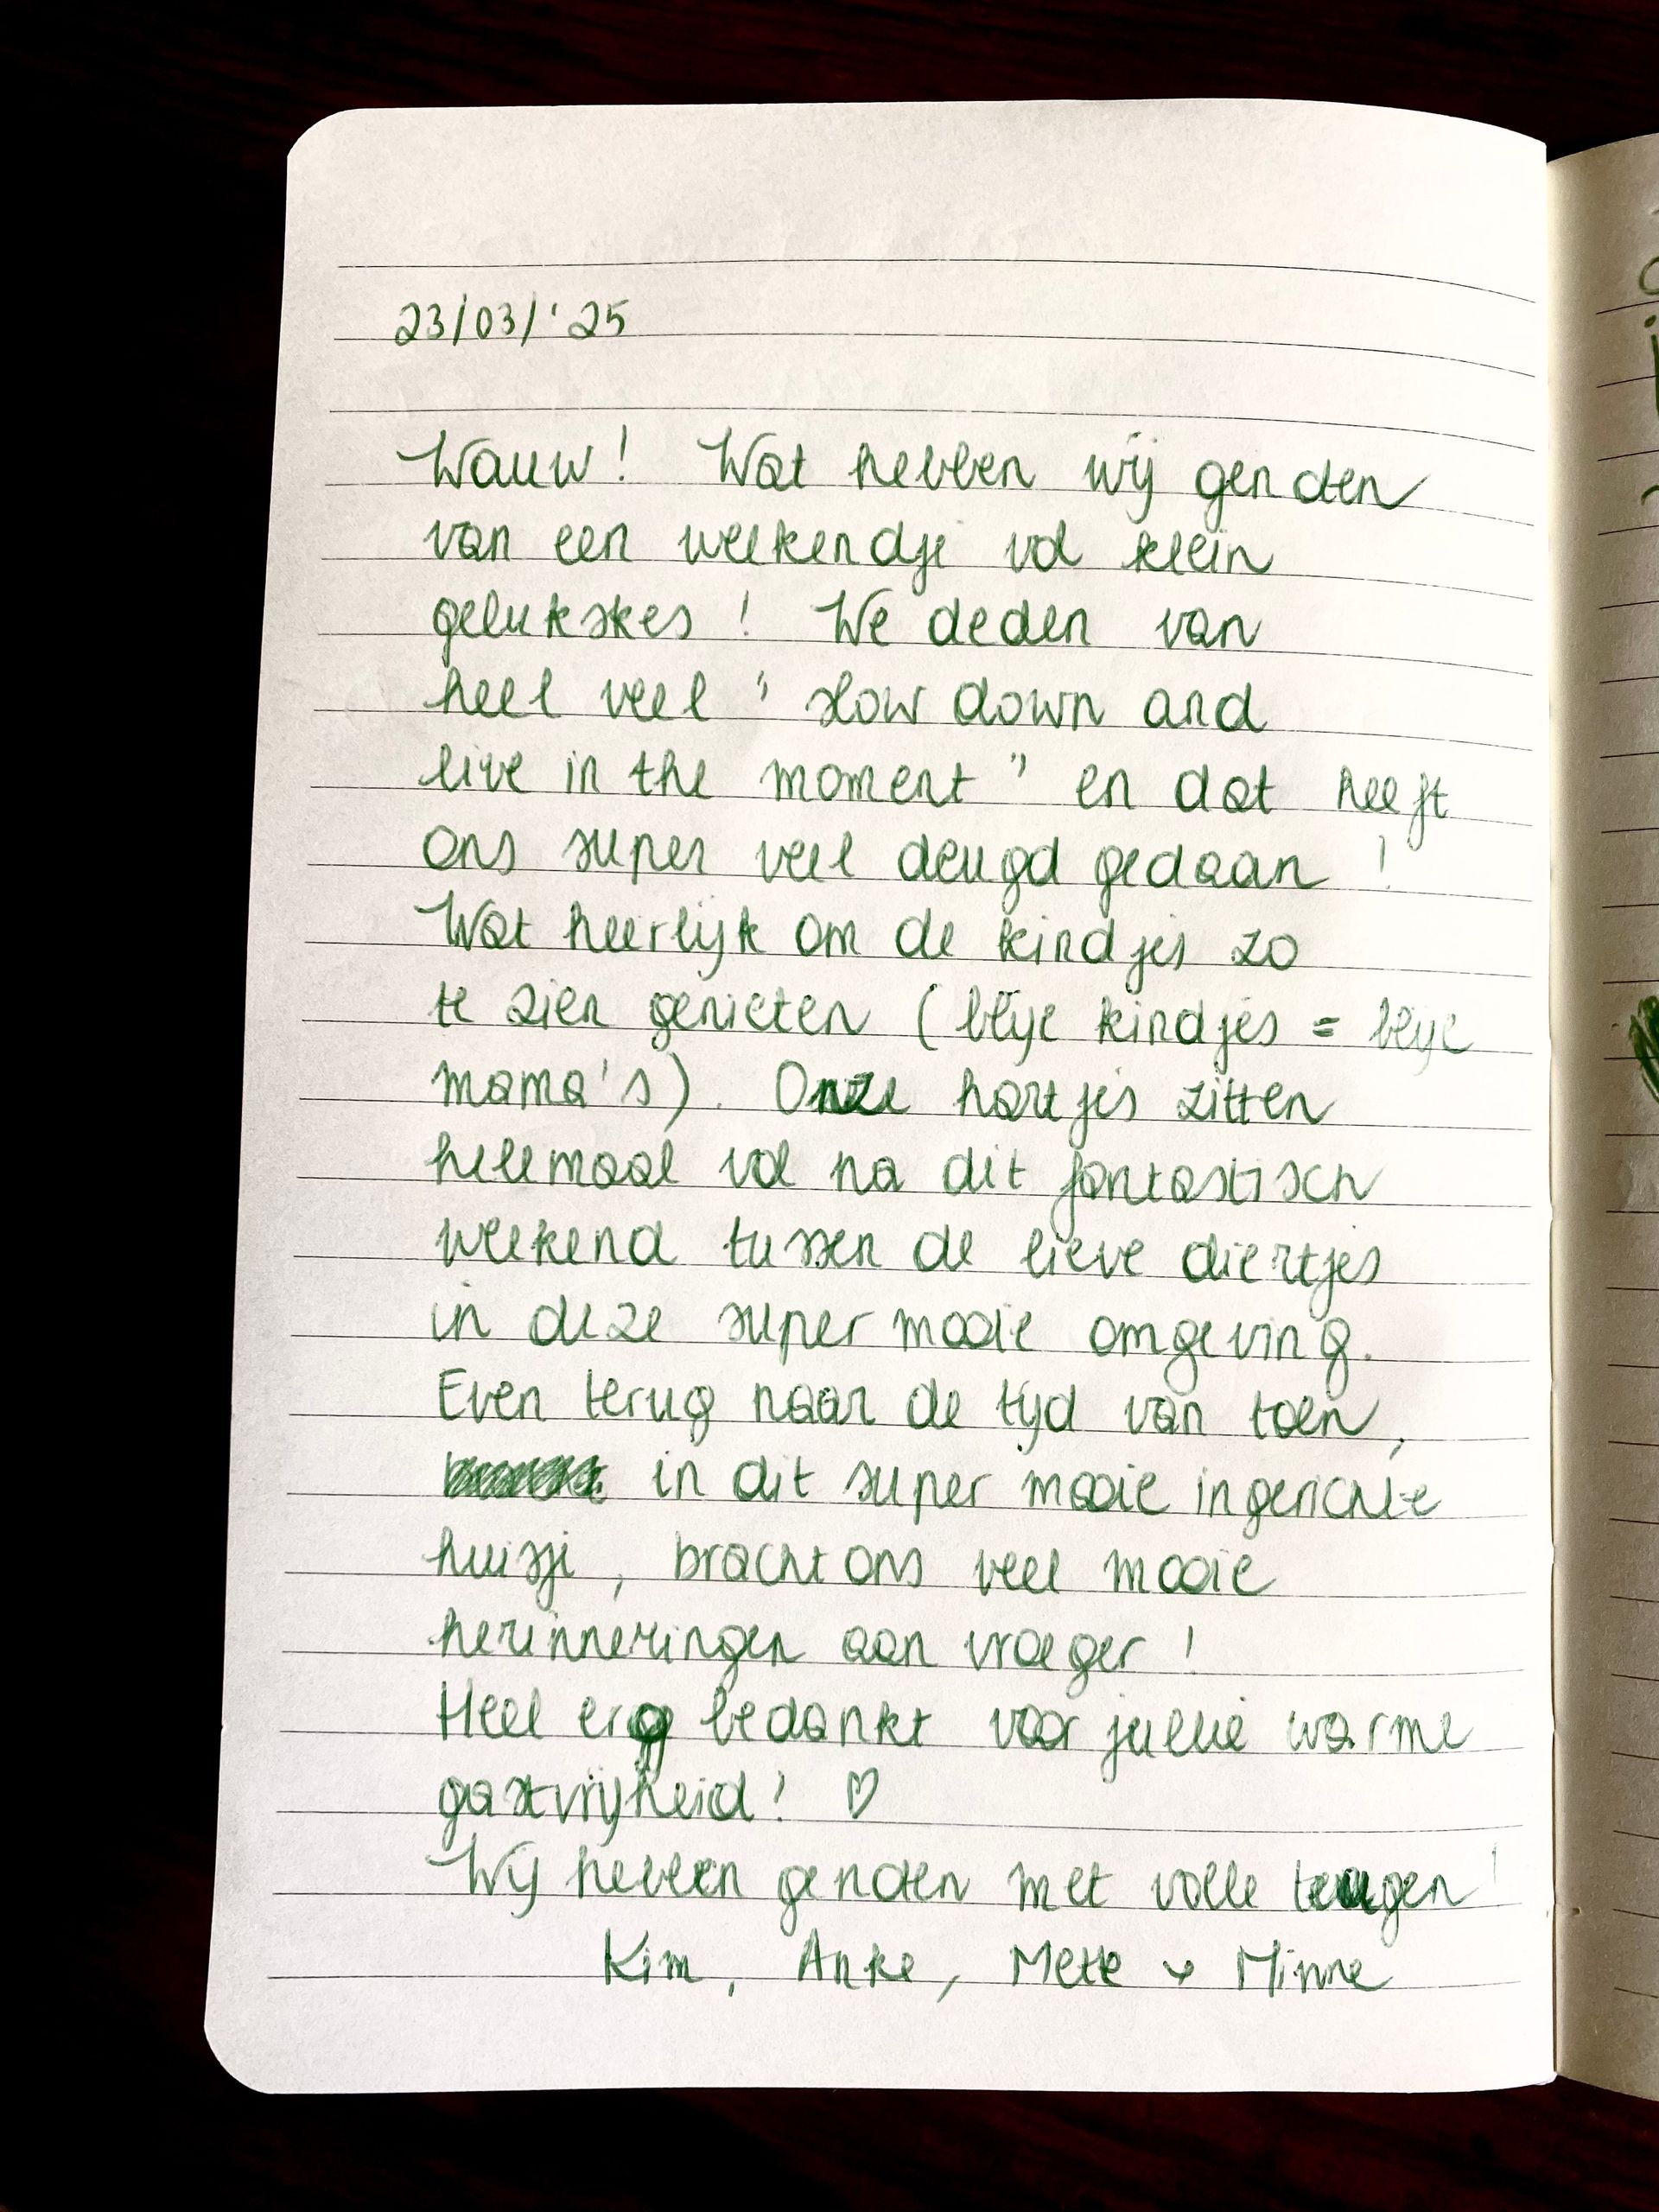 23/03/'25
Wauw! Wat hebben wij genoten
van een weekendje vol klein
gelukskes! We deden van
heel veel "slow down and
live in the moment" en dat heeft
ons super veel deugd gedaan!
Wat heerlijk om de kindjes zo
te zien genieten (blije kindjes = blije
mama's). Onze hartjes zitten
helemaal vol na dit fantastisch
weekend tussen de lieve diertjes
in deze super mooie omgeving.
Even terug naar de tijd van toen,
in dit super mooie ingerichte
huisje, bracht ons veel mooie
herinneringen aan vroeger!
Heel erg bedankt voor jullie warme
gastvrijheid! ♡
Wij hebben genoten met volle teugen!
Kim, Anke, Mette & Minne